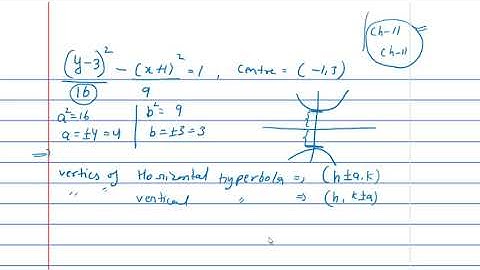 (h-11
(h-11
(y-3)²/16 - (x+1)²/9 = 1, centre = (-1,3)
a²=16 | b²= 9
a = ±4 = 4 | b = ±3 = 3
⇒
vertics of Horizontal hyperbola ⇒, (h±a, k)
" " vertical " ⇒ (h, k±a)